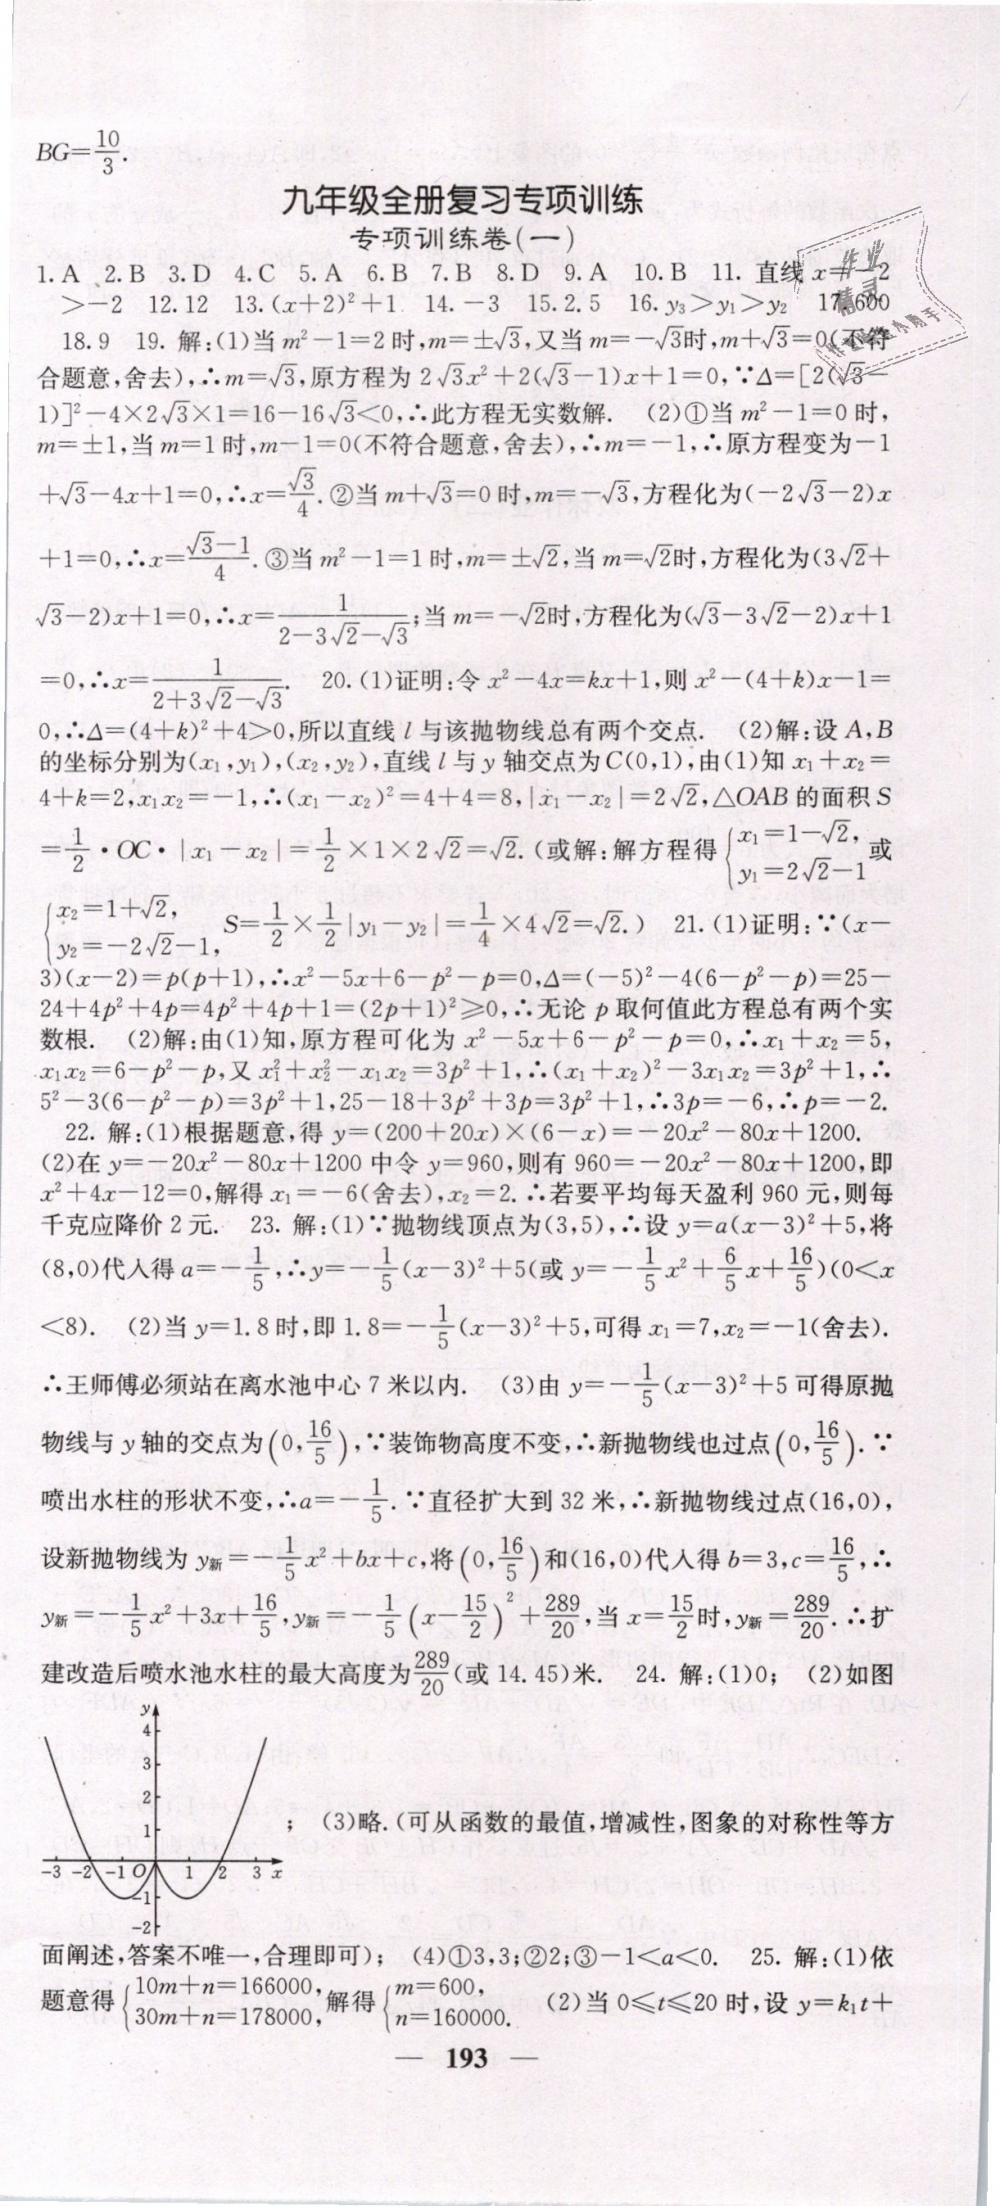 BG=10/3.
九年级全册复习专项训练
专项训练卷(一)
1.A 2.B 3.D 4.C 5.A 6.B 7.B 8.D 9.A 10.B 11. 直线 x=-2
>-2 12.12 13.(x+2)²+1 14.-3 15.2.5 16.y₃>y₁>y₂ 17.600
18.9 19. 解:(1)当 m²-1=2 时,m=±√3,又当 m=-√3时,m+√3=0(不符
合题意,舍去),∴m=√3,原方程为 2√3x²+2(√3-1)x+1=0,∵Δ=[2(√3-
1)]²-4×2√3×1=16-16√3<0,∴此方程无实数解. (2)①当 m²-1=0 时,
m=±1,当 m=1 时,m-1=0(不符合题意,舍去),∴m=-1,∴原方程变为-1
+√3-4x+1=0,∴x=√3/4.②当 m+√3=0 时,m=-√3,方程化为(-2√3-2)x
+1=0,∴x=(√3-1)/4.③当 m²-1=1 时,m=±√2,当 m=√2时,方程化为(3√2+
√3-2)x+1=0,∴x=1/(2-3√2-√3);当 m=-√2时,方程化为(√3-3√2-2)x+1
=0,∴x=1/(2+3√2-√3). 20.(1)证明:令 x²-4x=kx+1,则 x²-(4+k)x-1=
0,∴Δ=(4+k)²+4>0,所以直线 l 与该抛物线总有两个交点. (2)解:设 A,B
的坐标分别为(x₁,y₁),(x₂,y₂),直线 l 与 y 轴交点为C(0,1),由(1)知 x₁+x₂=
4+k=2,x₁x₂=-1,∴(x₁-x₂)²=4+4=8,|x₁-x₂|=2√2,△OAB 的面积 S
=1/2·OC·|x₁-x₂|=1/2×1×2√2=√2.(或解:解方程得{x₁=1-√2, y₁=2√2-1 或
{x₂=1+√2, y₂=-2√2-1, S=1/2×1/2|y₁-y₂|=1/4×4√2=√2.) 21.(1)证明:∵(x-
3)(x-2)=p(p+1),∴x²-5x+6-p²-p=0,Δ=(-5)²-4(6-p²-p)=25-
24+4p²+4p=4p²+4p+1=(2p+1)²≥0,∴无论 p 取何值此方程总有两个实
数根. (2)解:由(1)知,原方程可化为 x²-5x+6-p²-p=0,∴x₁+x₂=5,
x₁x₂=6-p²-p,又 x₁²+x₂²-x₁x₂=3p²+1,∴(x₁+x₂)²-3x₁x₂=3p²+1,∴
5²-3(6-p²-p)=3p²+1,25-18+3p²+3p=3p²+1,∴3p=-6,∴p=-2.
22. 解:(1)根据题意,得 y=(200+20x)×(6-x)=-20x²-80x+1200.
(2)在 y=-20x²-80x+1200 中令 y=960,则有 960=-20x²-80x+1200,即
x²+4x-12=0,解得 x₁=-6(舍去),x₂=2.∴若要平均每天盈利 960 元,则每
千克应降价 2 元. 23. 解:(1)∵抛物线顶点为(3,5),∴设 y=a(x-3)²+5,将
(8,0)代入得 a=-1/5,∴y=-1/5(x-3)²+5(或 y=-1/5x²+6/5x+16/5)(0<x
<8). (2)当 y=1.8 时,即 1.8=-1/5(x-3)²+5,可得 x₁=7,x₂=-1(舍去).
∴王师傅必须站在离水池中心 7 米以内. (3)由 y=-1/5(x-3)²+5 可得原抛
物线与 y 轴的交点为(0,16/5),∵装饰物高度不变,∴新抛物线也过点(0,16/5).∵
喷出水柱的形状不变,∴a=-1/5.∵直径扩大到 32 米,∴新抛物线过点(16,0),
设新抛物线为 y新=-1/5x²+bx+c,将(0,16/5)和(16,0)代入得 b=3,c=16/5,∴
y新=-1/5x²+3x+16/5,y新=-1/5(x-15/2)²+289/20,当 x=15/2时,y新=289/20.∴扩
建改造后喷水池水柱的最大高度为289/20(或 14.45)米. 24. 解:(1)0; (2)如图
y
4
3
2
1
-3 -2 -1 O 1 2 3 x
-1
-2
; (3)略.(可从函数的最值,增减性,图象的对称性等方
面阐述,答案不唯一,合理即可); (4)①3,3;②2;③-1<a<0. 25. 解:(1)依
题意得{10m+n=166000, 30m+n=178000, 解得{m=600, n=160000. (2)当 0≤t≤20 时,设 y=k₁t+
— 193 —
作业
精灵